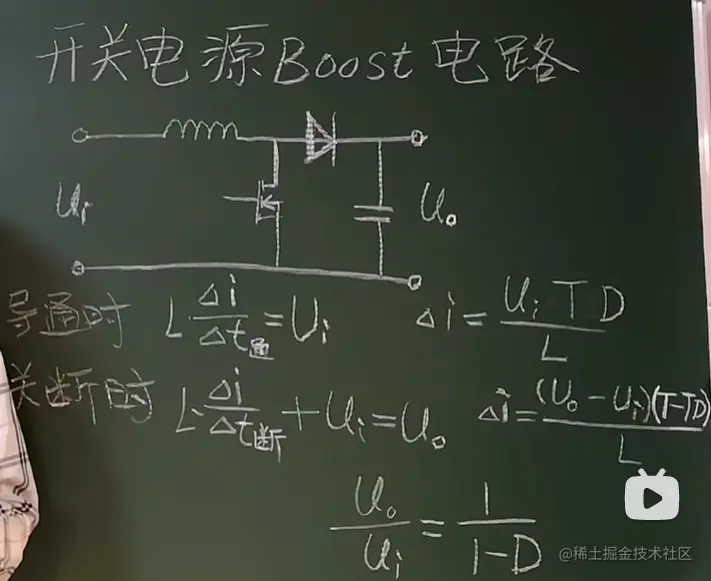 开关电源Boost电路
Ui
Uo
导通时 L·Δi/Δt通=Ui Δi=UiTD/L
关断时 L·Δi/Δt断+Ui=Uo Δi=(Uo-Ui)(T-TD)/L
Uo/Ui=1/1-D
@稀土掘金技术社区